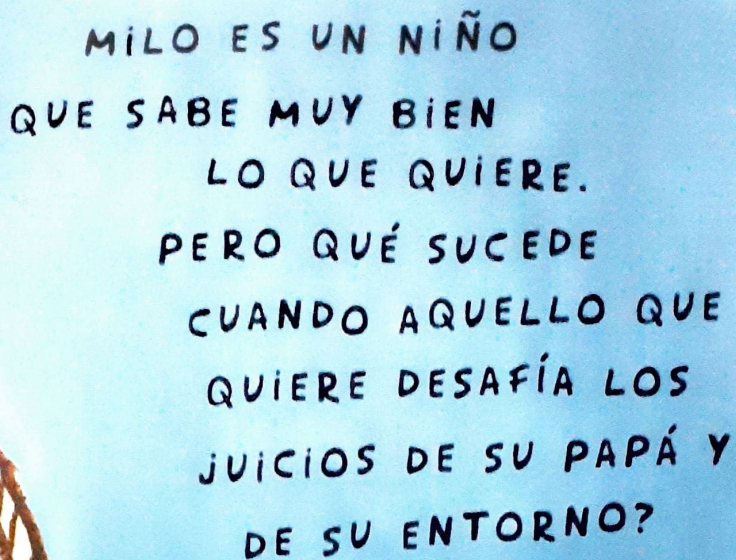 MiLO ES UN NiÑO
QUE SABE MUY BiEN
LO QUE QUiERE.
PERO QUÉ SUCEDE
CUANDO AQUELLO QUE
QUiERE DESAFÍA LOS
JUiCiOS DE SU PAPÁ Y
DE SU ENTORNO?